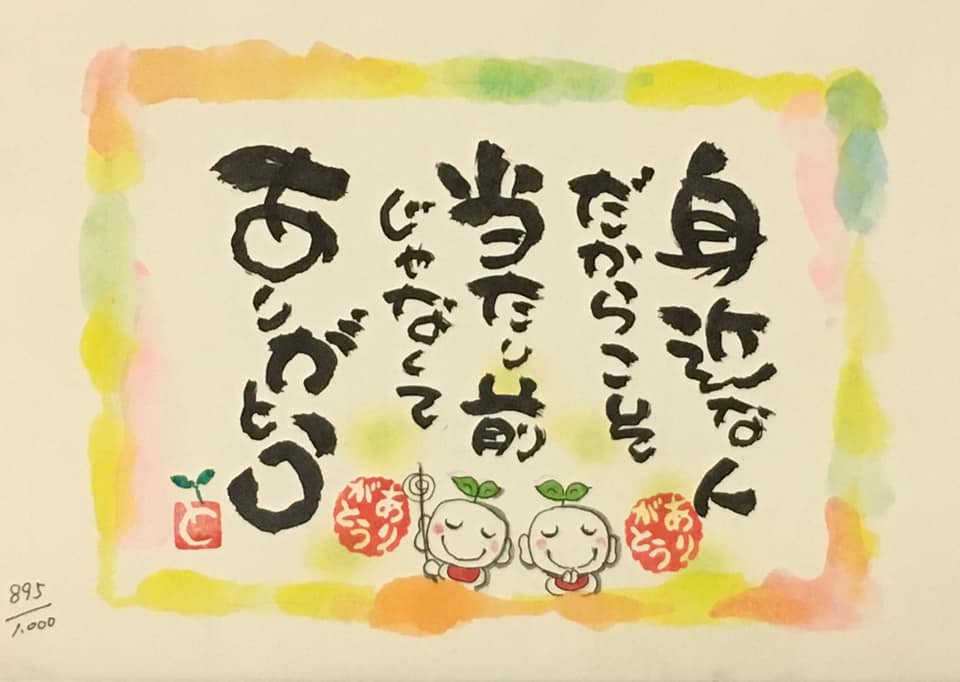 身近な人
だからこそ
当たり前
じゃなくて
ありがとう
ありがとう
ありがとう
と
895/1.000